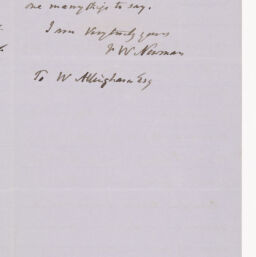 one many things to say.
I am Very truly yours
F W Newman
To W Allingham Esq